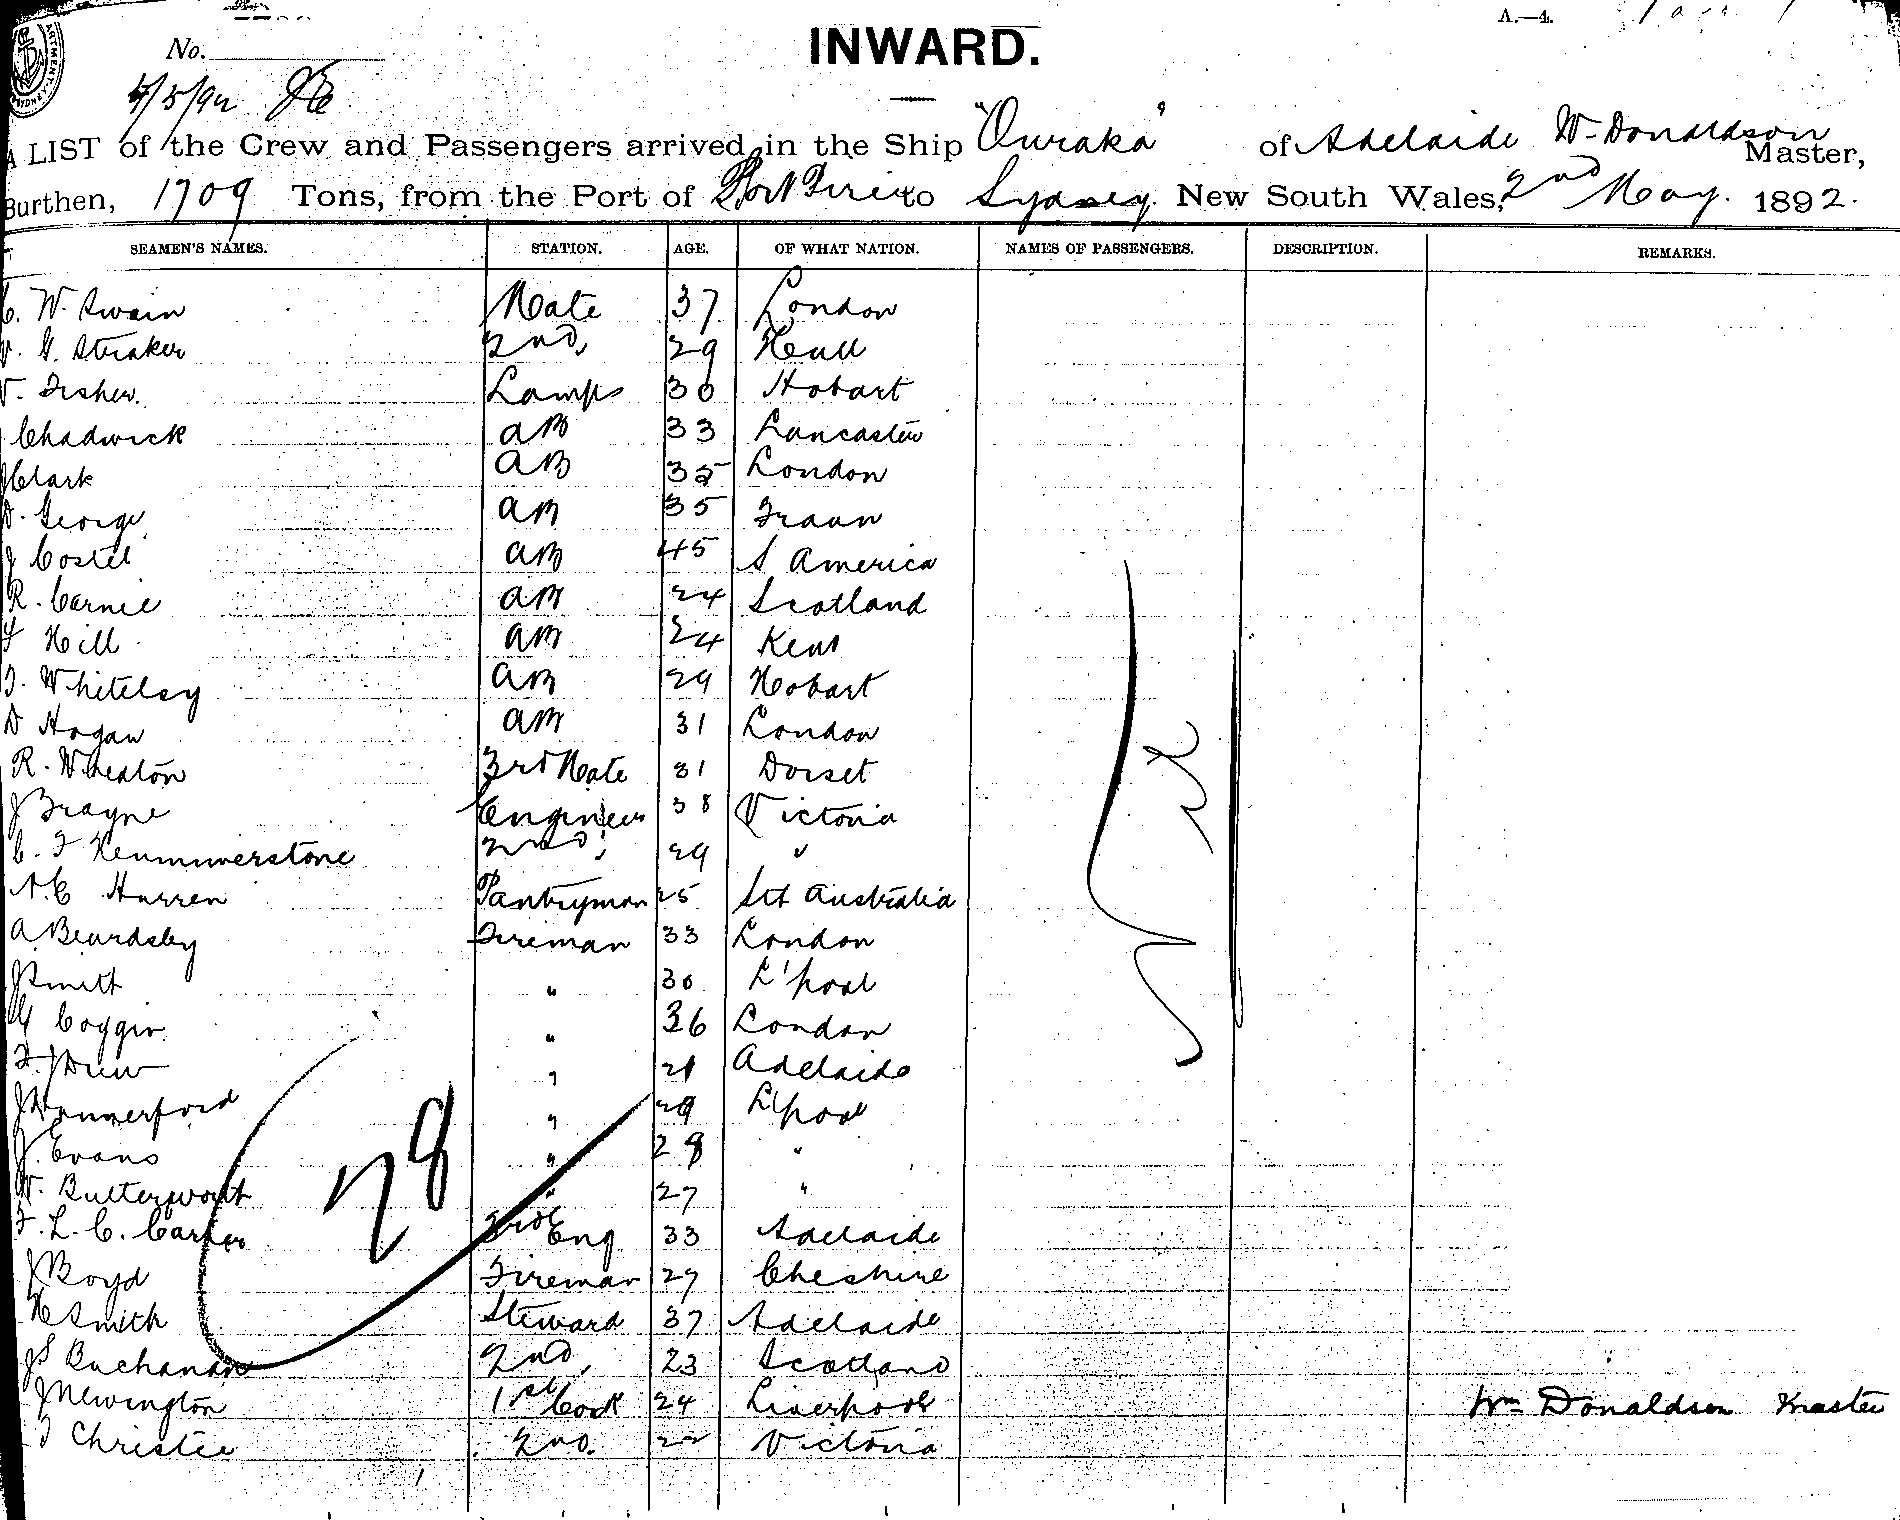 A.—4.
No.
INWARD.
5/5/92
A LIST of the Crew and Passengers arrived in the Ship "Ouraka" of Adelaide W. Donaldson Master,
Burthen, 1709 Tons, from the Port of Port Pirie to Sydney New South Wales, 2nd May. 1892.
SEAMEN'S NAMES. STATION. AGE. OF WHAT NATION. NAMES OF PASSENGERS. DESCRIPTION. REMARKS.
C. W. Swain Mate 37 London
G. Straker 2nd, 29 Hull
Fisher. Lamps 30 Hobart
Chadwick AB 33 Lancaster
J Clark AB 35 London
D. George AB 35
J Costel AB 45 S America
R. Carnie AB 24 Scotland
F Hill AB 24 Kent
T. Whitelsy AB 29 Hobart
D Hogan AB 31 London
R. Wheaton 3rd Mate 31 Dorset
J Brayne Engineer 38 Victoria
C. F 2nd, 29 "
Hurren Pantryman 25 Sth Australia
A. Beardsley Fireman 33 London
J Smith " 30 L'pool
Coggin " 36 London
F. J Drew " 21 Adelaide
J " 29 L'pool
J. Evans " 28 "
W. Butterworth " 27 "
F. L. C. Carter 3rd Eng 33 Adelaide
J Boyd Fireman 27 Cheshire
H Smith Steward 37 Adelaide
J S Buchanan 2nd, 23 Scotland
J Newington 1st Cook 24 Liverpool Wm Donaldson Master
Christie 2nd. 22 Victoria
28